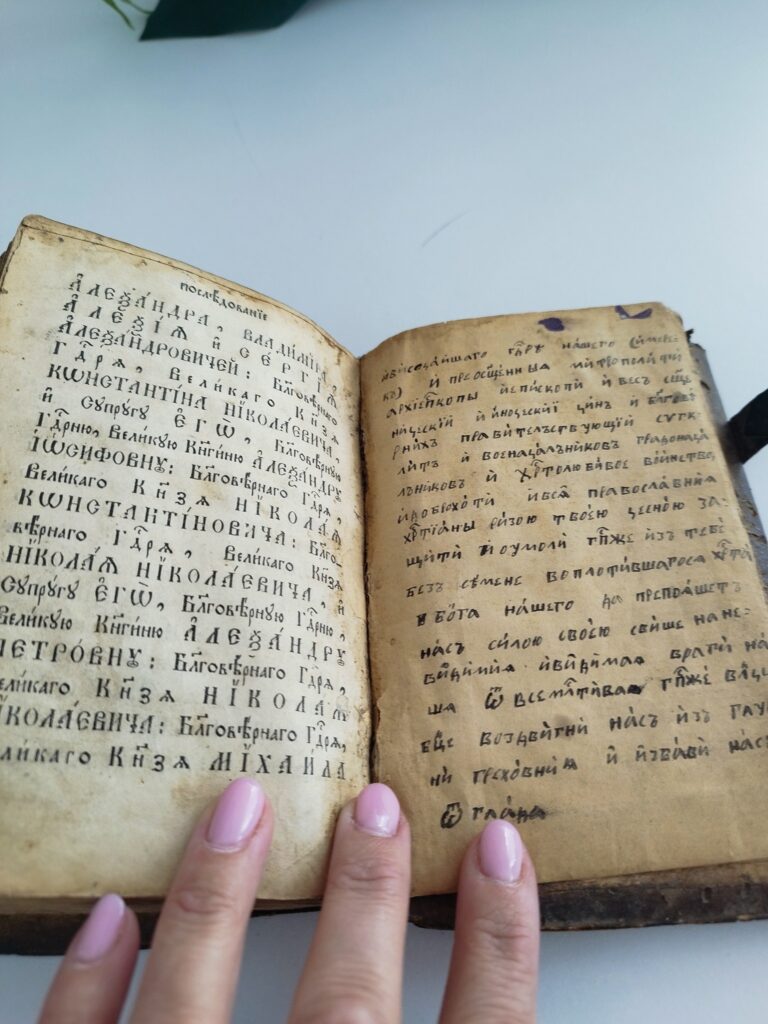 послѣдованїе
А҆леѯа́ндра, Влади́мїра,
А҆леѯі́ѧ и҆ Се́ргїѧ
А҆леѯа́ндровичей: Бл҃говѣ́рнаго
Гд҃рѧ, Вели́каго Кн҃зѧ
Кѡнстанті́на Нїкола́евича,
и҆ Сꙋпрꙋ́гꙋ Є҆гѡ̀, Бл҃говѣ́рнꙋю
Гд҃рню, Вели́кꙋю Кнѧги́ню А҆леѯа́ндрꙋ
І҆ѡ́сифовнꙋ: Бл҃говѣ́рнаго Гд҃рѧ,
Вели́каго Кн҃зѧ Нїкола́ѧ
Кѡнстанті́новича: Бл҃го-
вѣ́рнаго Гд҃рѧ, Вели́каго Кн҃зѧ
Нїкола́ѧ Нїкола́евича, и҆
Сꙋпрꙋ́гꙋ Є҆гѡ̀, Бл҃говѣ́рнꙋю Гд҃рню,
Вели́кꙋю Кнѧги́ню А҆леѯа́ндрꙋ
Петро́внꙋ: Бл҃говѣ́рнаго Гд҃рѧ,
Вели́каго Кн҃зѧ Нїкола́ѧ
Нїкола́евича: Бл҃говѣ́рнаго Гд҃рѧ,
Вели́каго Кн҃зѧ Мїхаи́ла
нашего
и҆ преосщ҃енныѧ митрополи́ти
архїеп҃копы и҆епископи и҆ весь сще҃
ни́ческїй и҆и҆но́ческїй чинъ и҆
правительствующїй
литъ и҆ военачалъниковъ градонача
лъниковъ и҆ хр҃толюби́вое во́инство
и҆доброхо́ти и҆всѧ̀ православнїѧ
хр҃тїаны ри́зою твое́ю чесно́ю за
щити и҆оумоли гп҃же и҆зъ тебѐ
безъ семене воплоти́вшагосѧ хр҃та
и҆ бо́га на́шего да препоѧшетъ
на́съ си́лою свое́ю свише на не-
ви́димиѧ и҆ви́димаѧ враги́ на
ша ѽ всемл҃тиваѧ гп҃же
еще҃ воздви́гни на́съ и҆зъ глу
ни́ грехо́внїѧ и҆ и҆зба́ви на́съ
ѿ гла́да